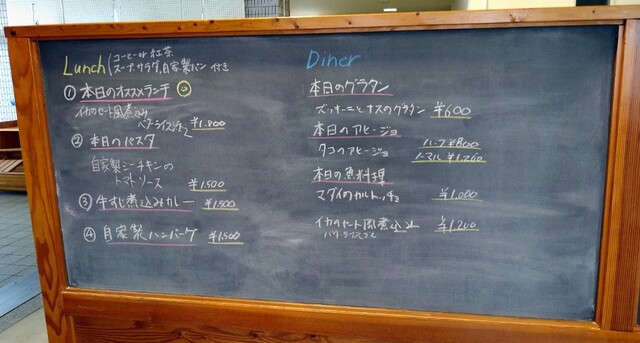 Lunch
コーヒー or 紅茶
スープ サラダ 自家製パン 付き
① 本日のオススメランチ
イカのセート風煮込み
バターライスジェ ¥1.800
② 本日のパスタ
自家製シーチキンの
トマトソース ¥1.500
③ 牛すじ煮込みカレー ¥1.500
④ 自家製ハンバーグ ¥1.500
Diner
本日のグラタン
ズッキーニとナスのグラタン ¥600
本日のアヒージョ
タコのアヒージョ ハーフ ¥800
ノーマル ¥1.260
本日の魚料理
マダイのカルトッチョ ¥1.000
イカのセート風煮込み ¥1.200